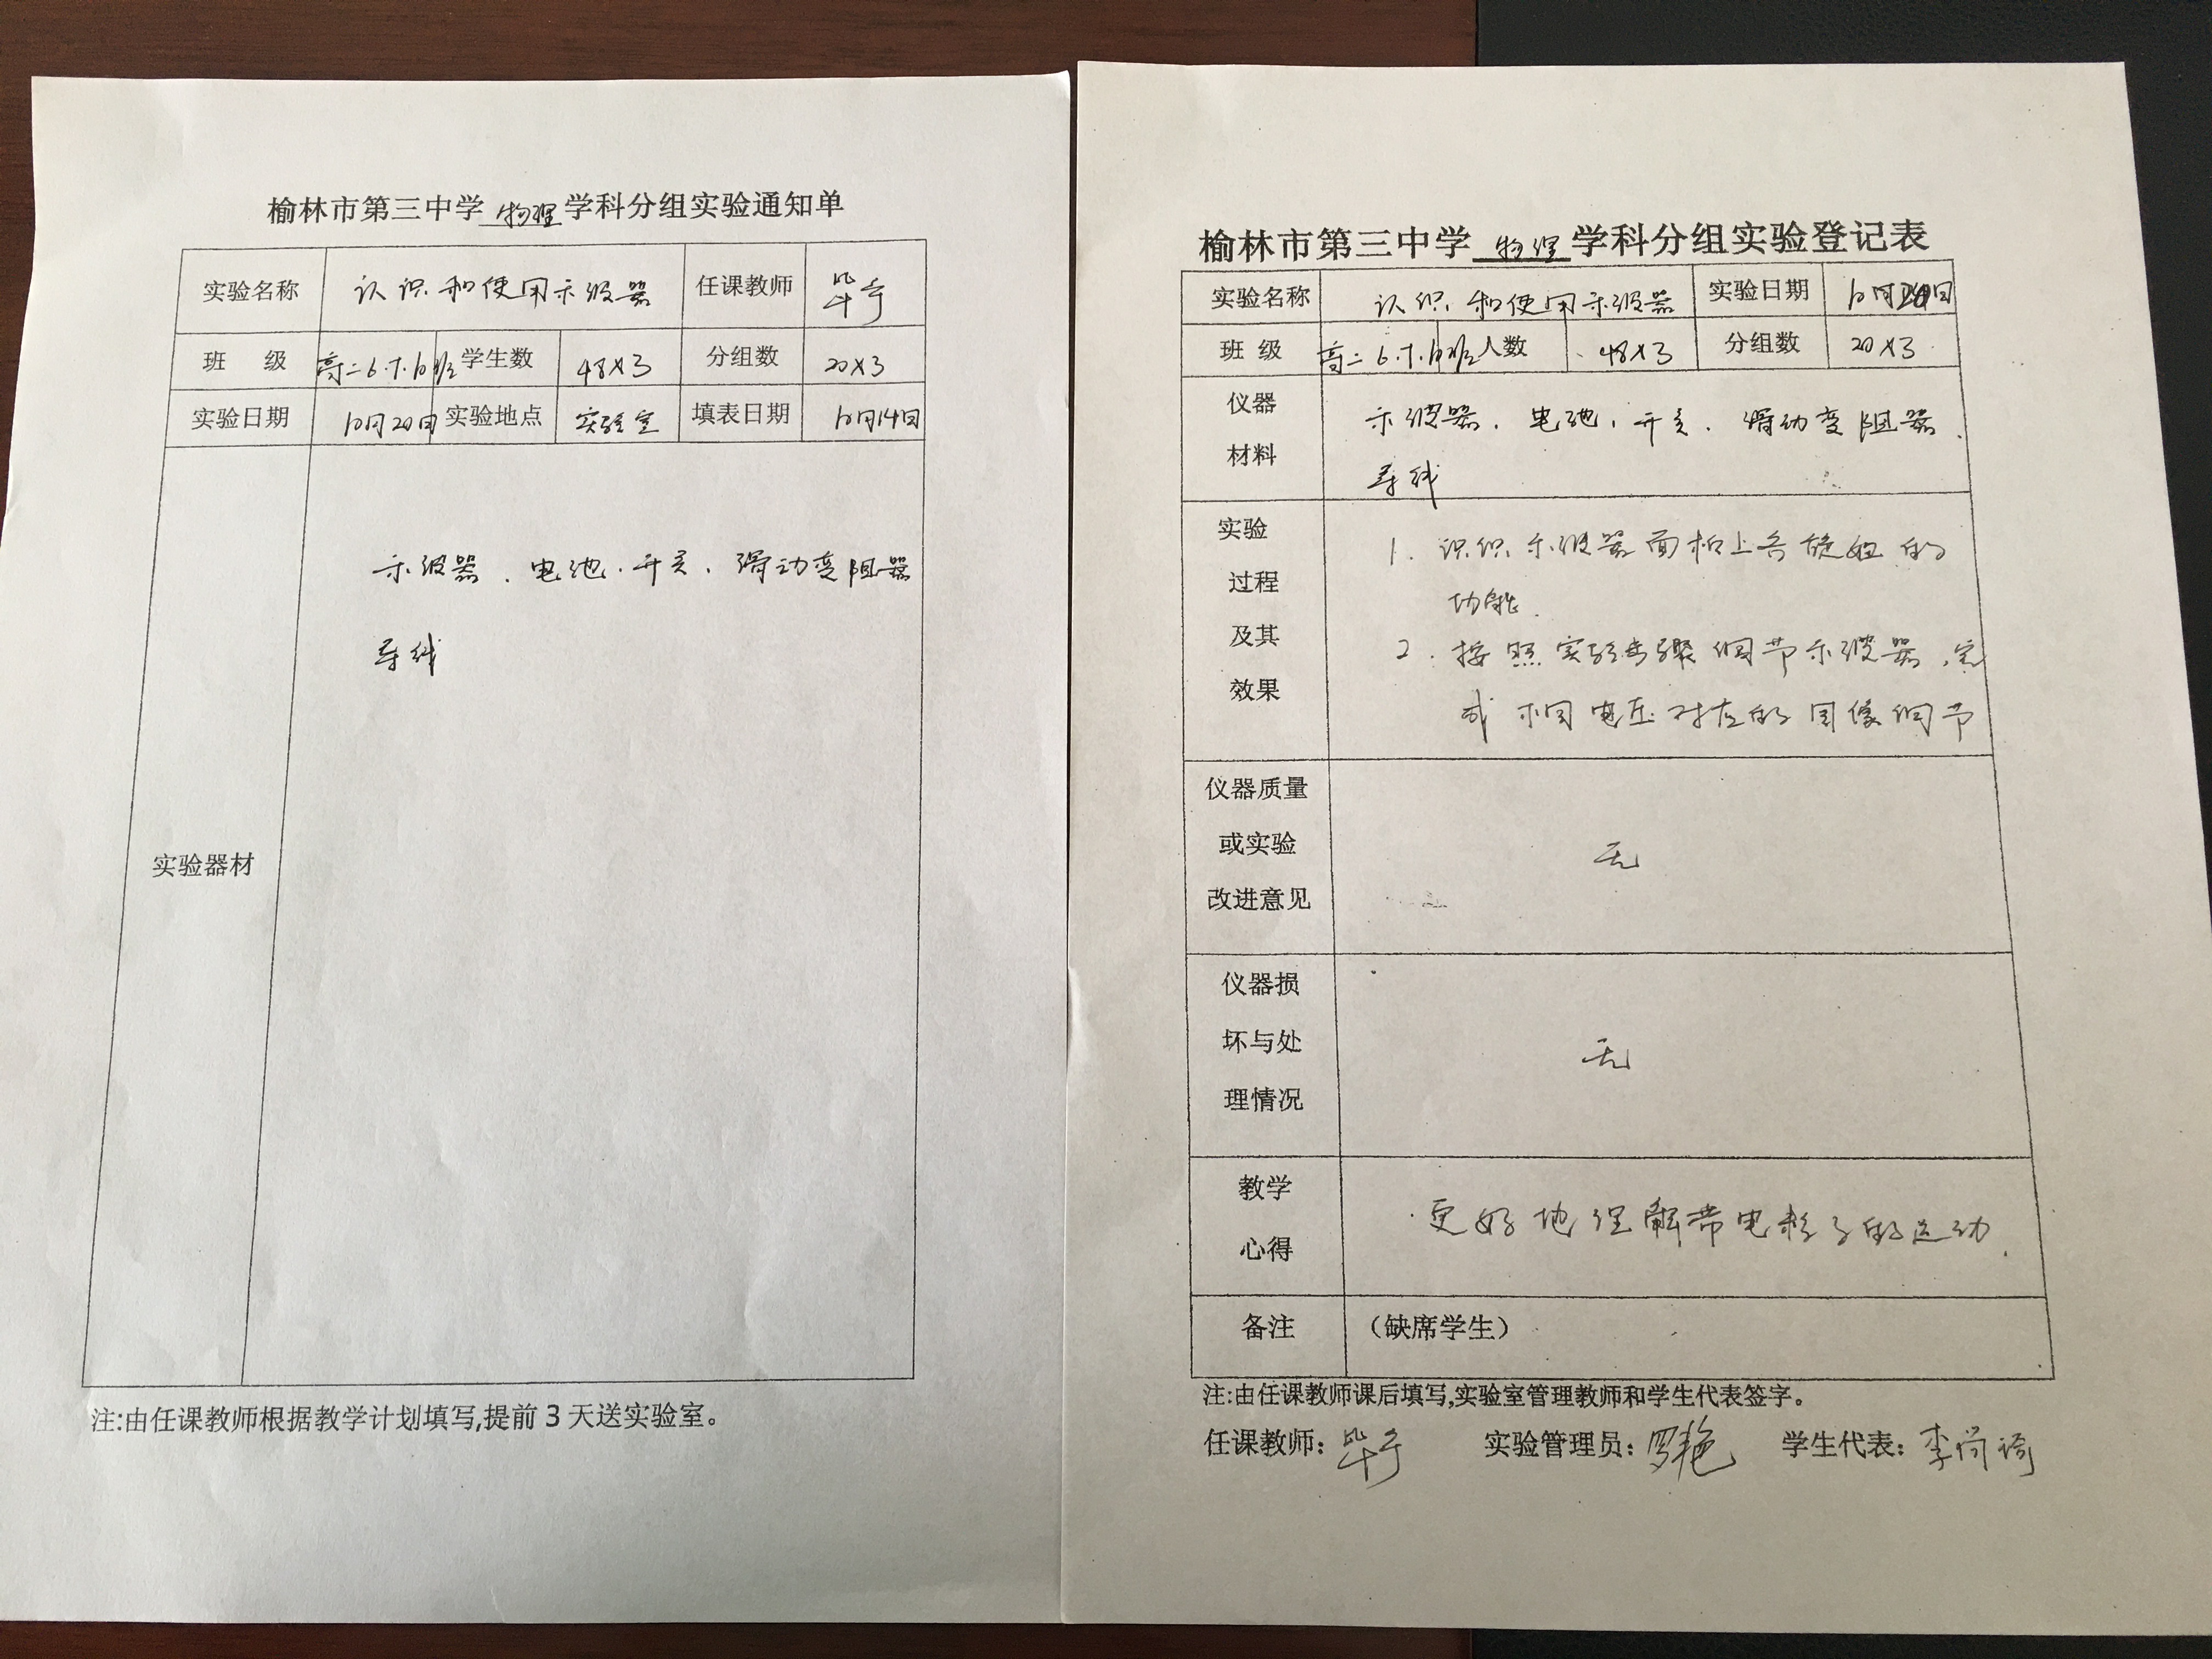 榆林市第三中学 物理 学科分组实验通知单
实验名称 认识和使用示波器 任课教师 毕宁
班 级 高二6.7.10班 学生数 48×3 分组数 20×3
实验日期 10月20日 实验地点 实验室 填表日期 10月14日
实验器材
示波器.电池.开关.滑动变阻器
导线
注:由任课教师根据教学计划填写,提前3天送实验室。
榆林市第三中学 物理 学科分组实验登记表
实验名称 认识和使用示波器 实验日期 10月20日
班 级 高二6.7.10班 人数 48×3 分组数 20×3
仪器
材料
示波器.电池.开关.滑动变阻器.
导线
实验
过程
及其
效果
1. 识识示波器面板上各旋钮的
功能.
2. 按照实验步骤调节示波器,完
成不同电压对应的图像调节
仪器质量
或实验
改进意见
无
仪器损
坏与处
理情况
无
教学
心得
更好地理解带电粒子的运动.
备注 (缺席学生)
注:由任课教师课后填写,实验室管理教师和学生代表签字。
任课教师: 毕宁 实验管理员: 罗艳 学生代表: 李尚琦